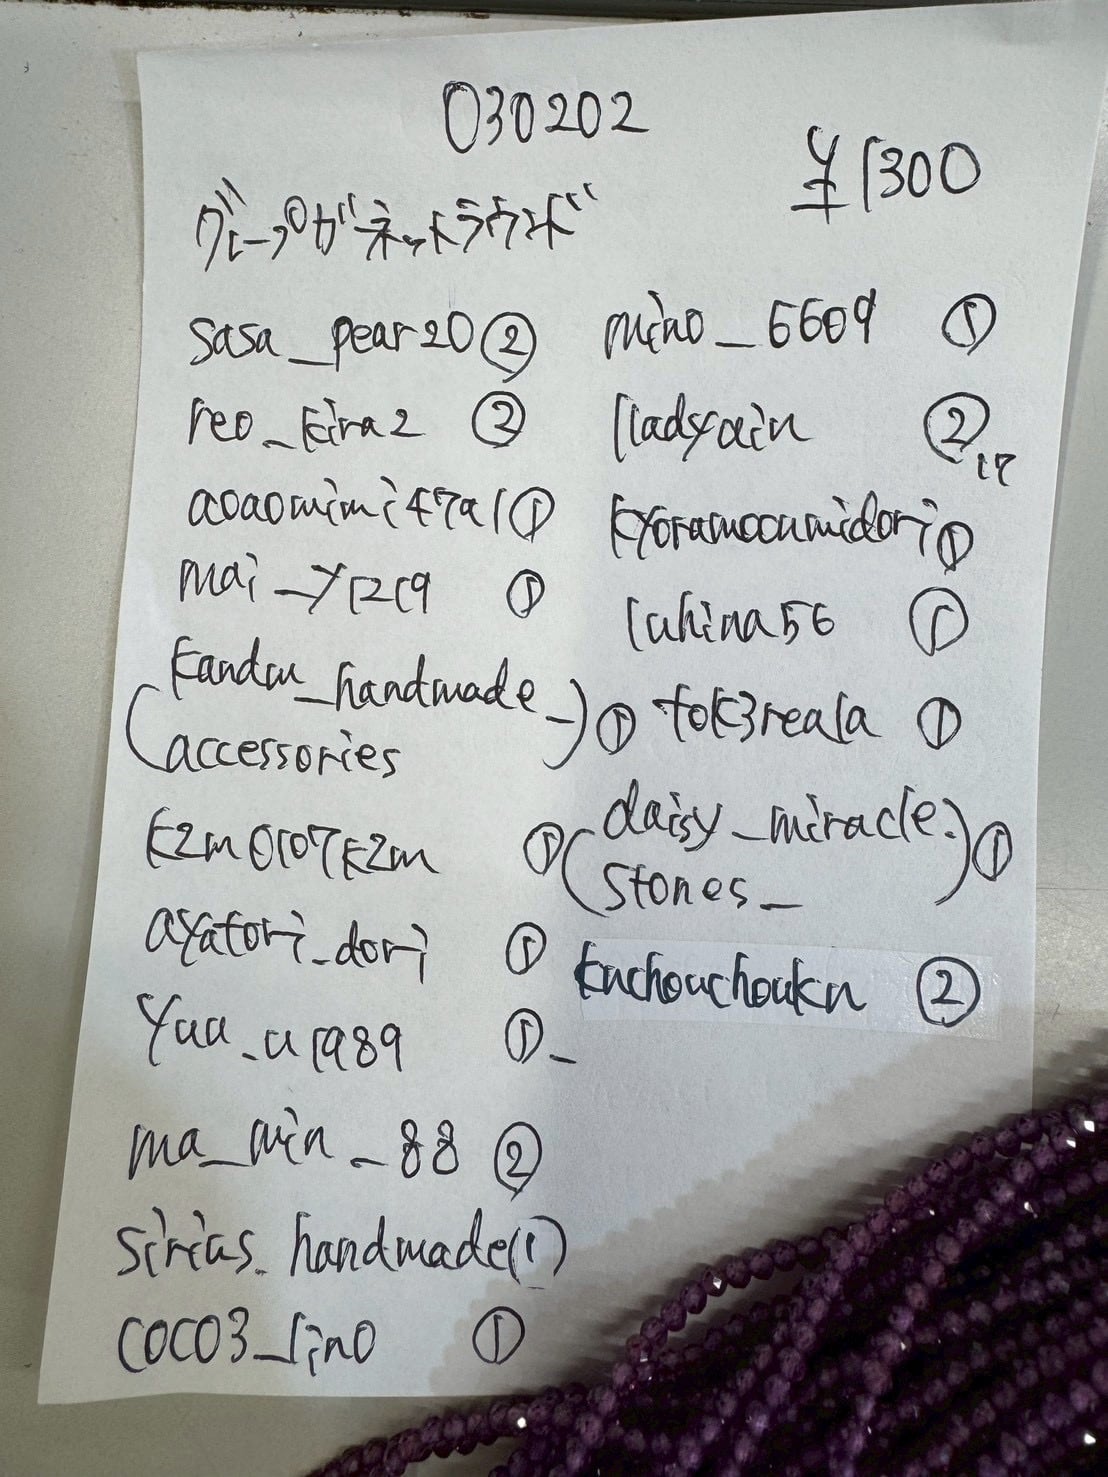 030202
¥1300
グレープガーネットラウンド
sasa_pear20 ②
reo_kira2 ②
aoaomimi47a1 ①
mai_y1219 ①
(kandu_handmade_
accessories) ①
kzm0107kzm ①
ayatori_dori ①
yuu_u1989 ①_
ma_min_88 ②
sirius_handmade(1)
coco3_lino ①
mino_6609 ①
lladyain ②
17
kyoramoonmidori ①
luhina56 ①
tok3reala ①
(daisy_miracle.
stones_) ①
kuchouchouku ②